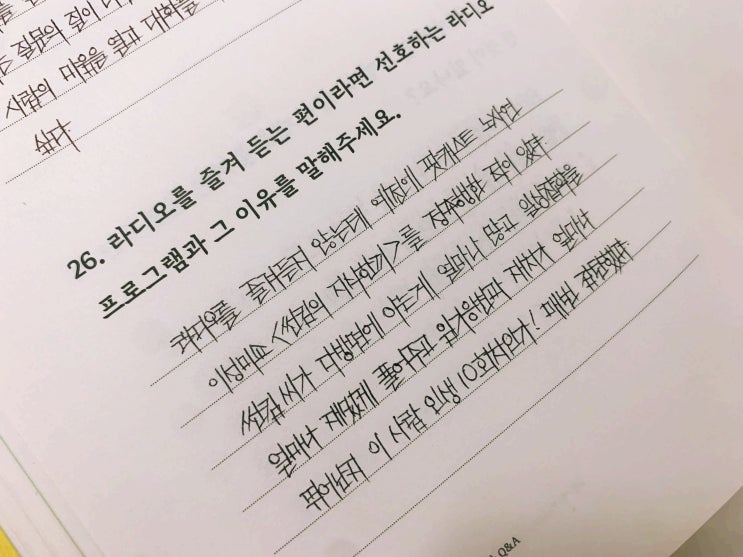 질문의 질이
사람의 마음을 열고 대화를
싶다
26. 라디오를 즐겨 듣는 편이라면 선호하는 라디오
프로그램과 그 이유를 말해주세요.
라디오를 즐겨듣진 않는데 예전에 팟캐스트
<썬킴의 지식한끼>를 정주행한 적이 있다.
썬킴 씨가 다방면에 아는게 얼마나 많고
얼마나 재밌게 풀어내고 임기응변과 재치가 얼마나
뛰어난지 이 사람 인생 10회차인가! 매번
Q&A